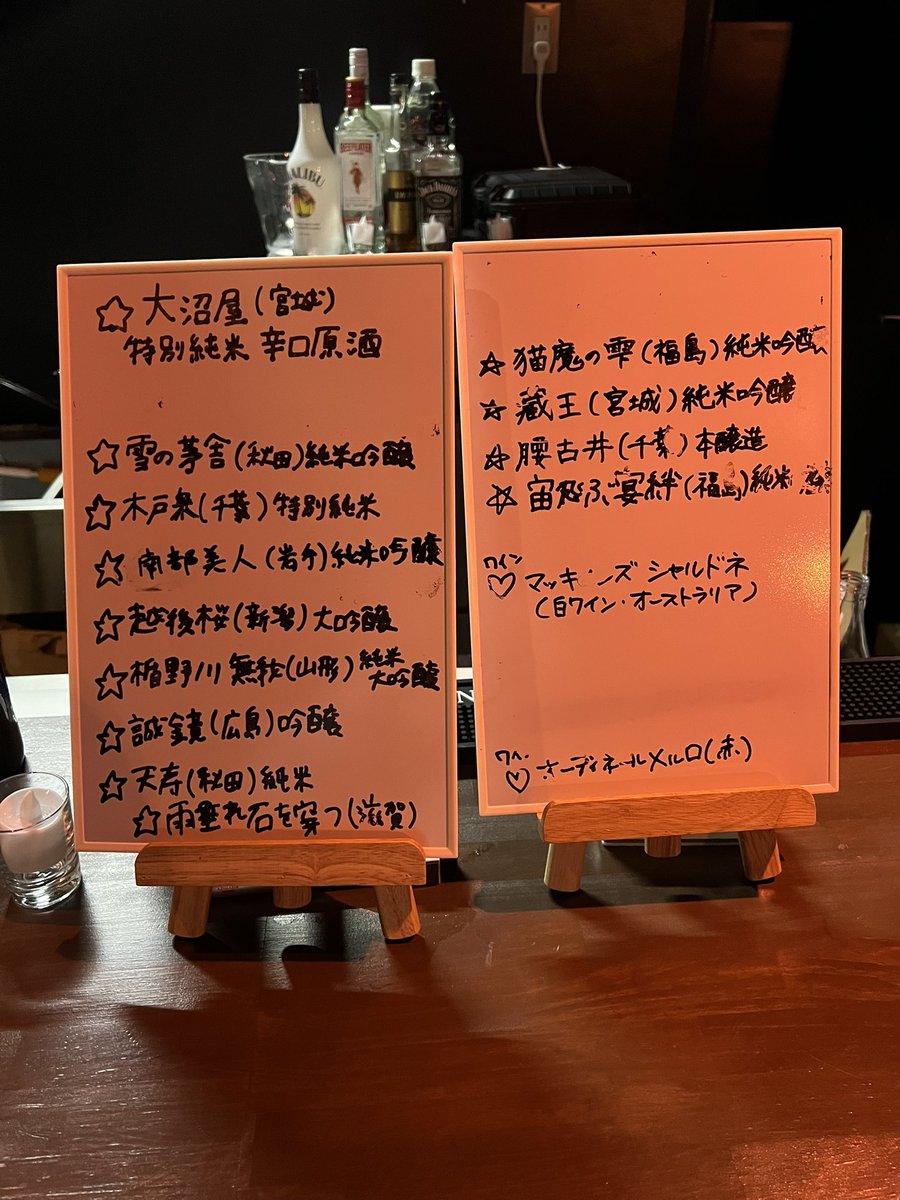 MALIBU
BEEFEATER
JACK DANIEL'S
☆大沼屋(宮城)
特別純米 辛口原酒
☆雪の茅舎(秋田)純米吟醸
☆木戸泉(千葉)特別純米
☆南部美人(岩手)純米吟醸
☆越後桜(新潟)大吟醸
☆楯野川 無我(山形)純米
大吟醸
☆誠鏡(広島)吟醸
☆天寿(秋田)純米
☆雨垂れ石を穿つ(滋賀)
☆猫魔の雫(福島)純米吟醸
☆蔵王(宮城)純米吟醸
☆腰古井(千葉)本醸造
☆宴絆(福島)純米
ワイン
♡マッキンズ シャルドネ
(白ワイン・オーストラリア)
♡オーディネールメルロ(赤)